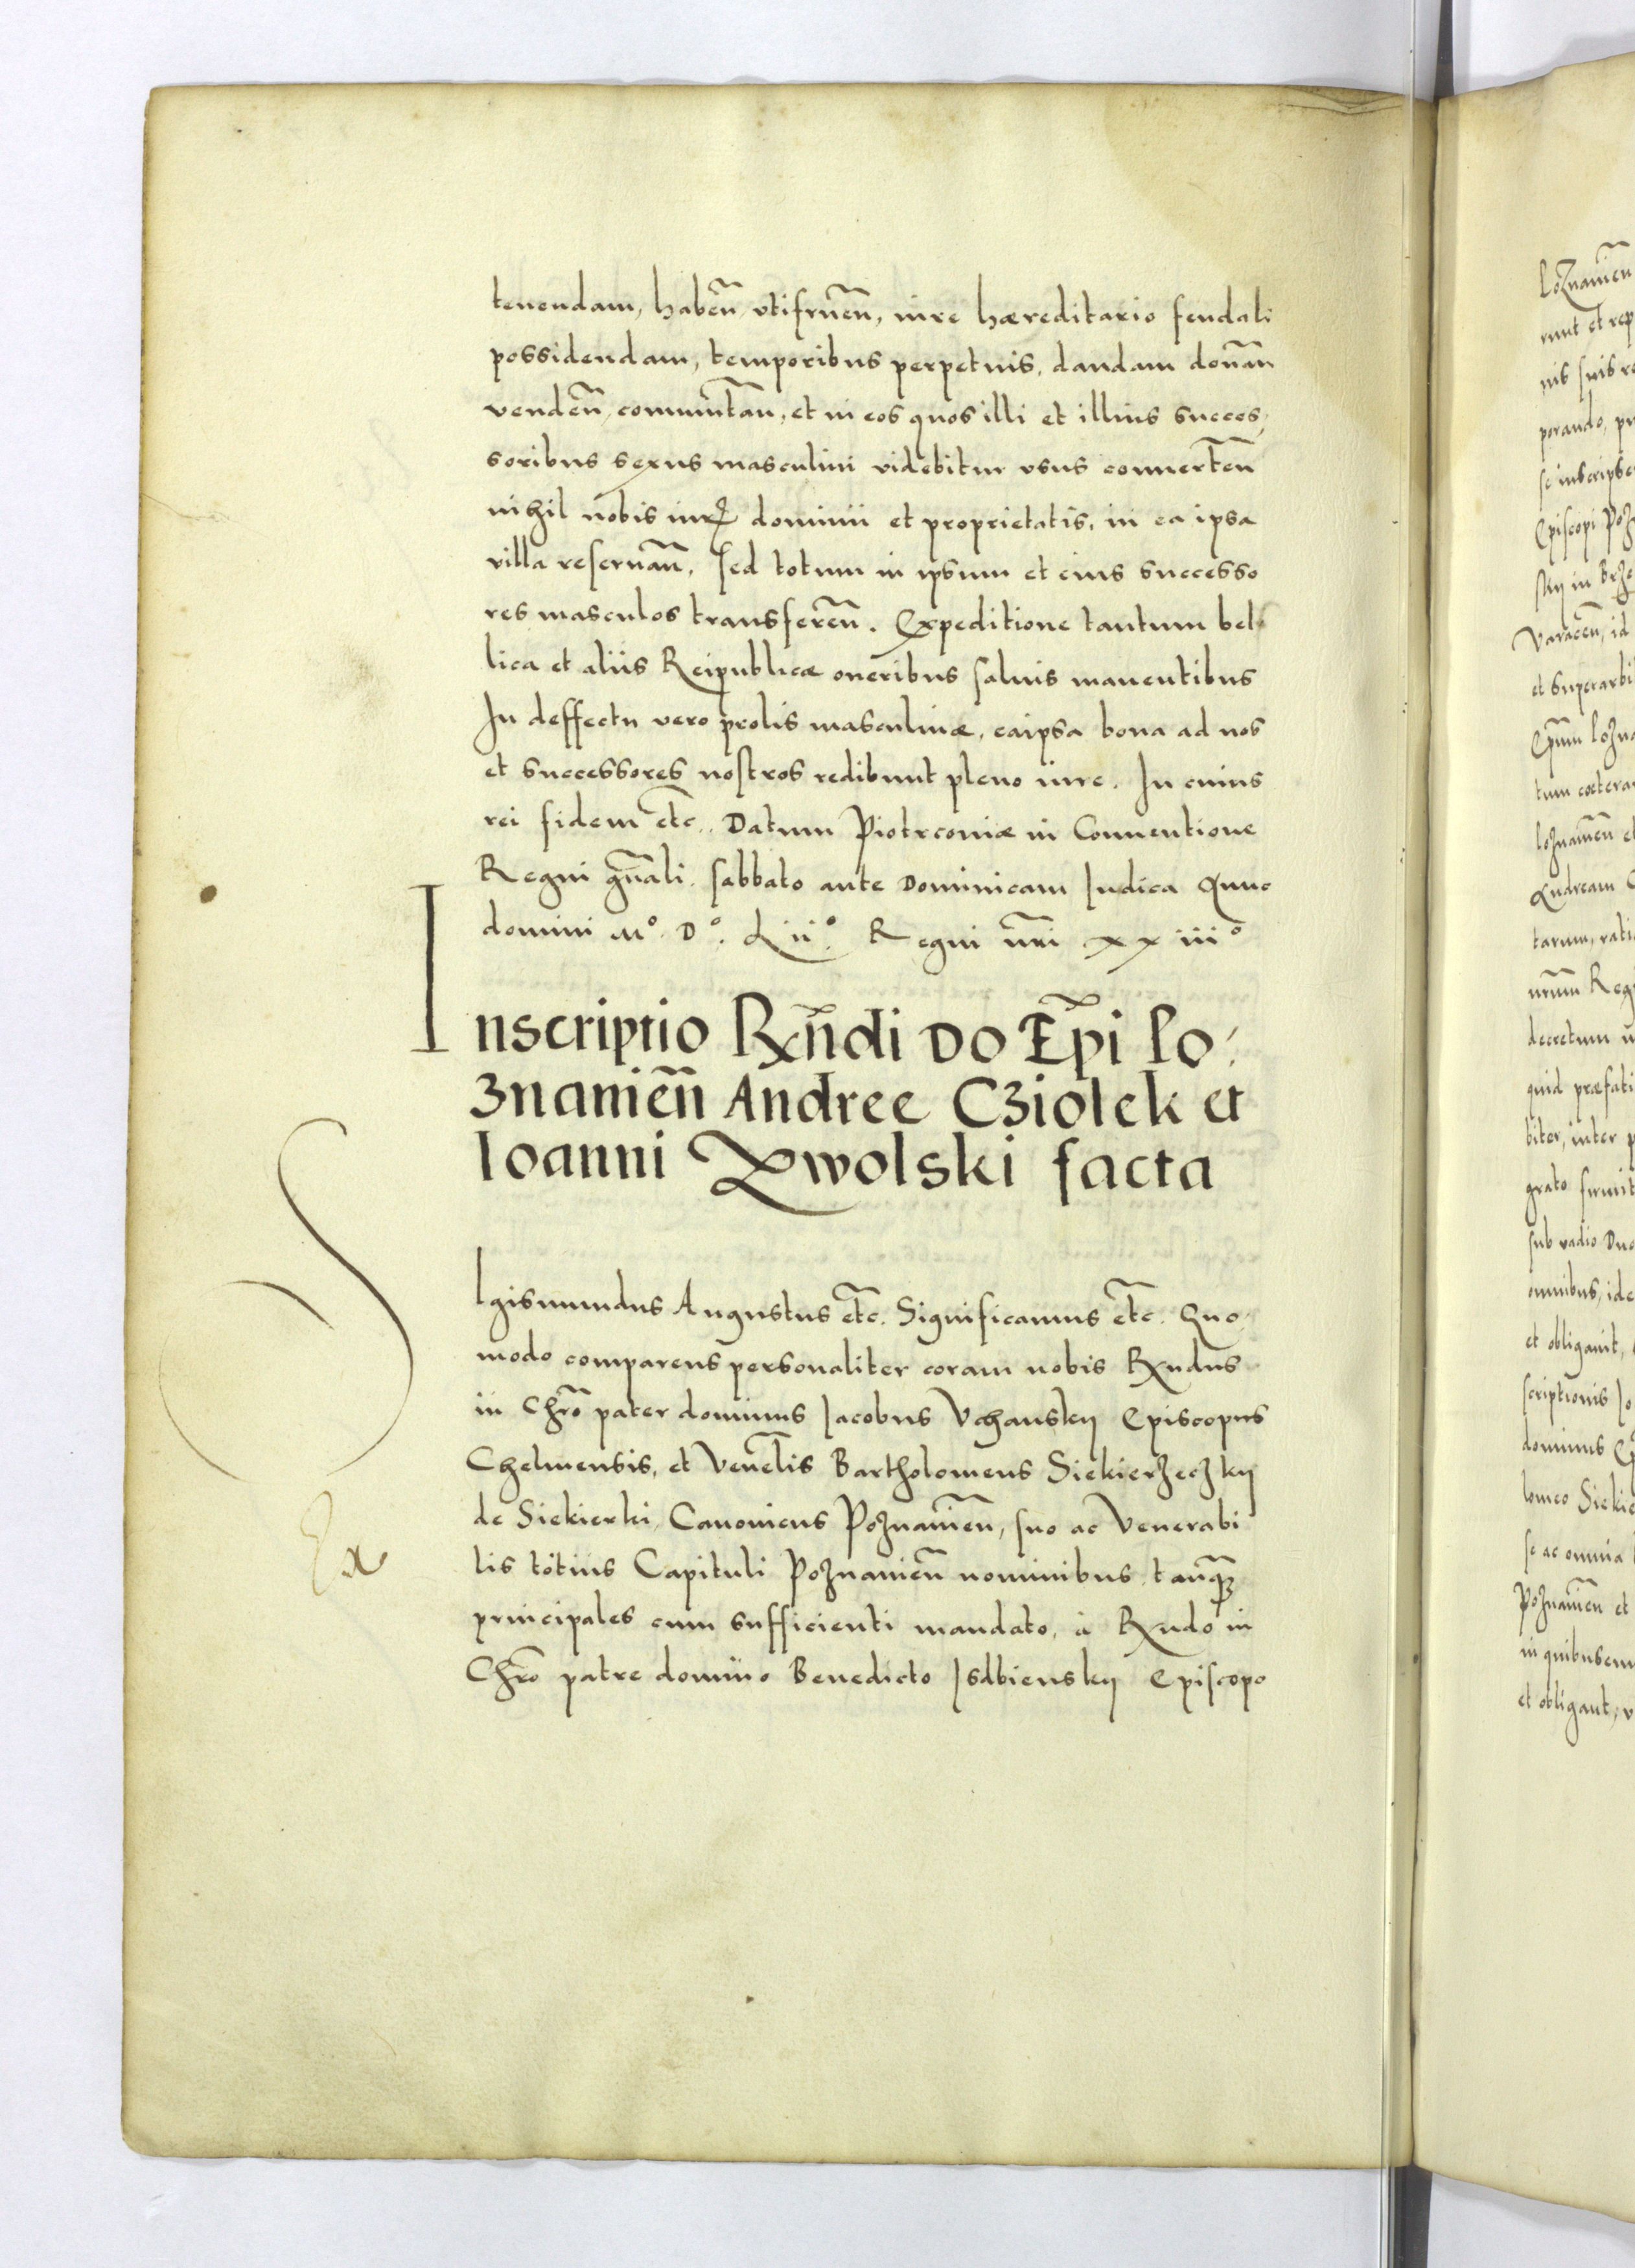 tenendam, habeñ vtifrueñ, iure hæreditario feudali
possidendam, temporibus perpetuis, dandam donañ
vendeñ, commutañ, et in eos quos illi et illius succes,
soribus sexus masculini videbitur vsus conuerteñ
nihil nobis iurꝭ dominii et proprietatis, in ea ipsa
villa reseruañ, sed totum in ipsum et eius successo
res masculos transfereñ. Expeditione tantum bel
lica et aliis Reipublicæ oneribus saluis manentibus
In deffectu vero prolis masculinæ, eaipsa bona ad nos
et successores nostros redibunt pleno iure. In cuius
rei fidem etc̃. Datum Piotrcouiæ in Conuentione
Regni gñali. sabbato ante Dominicam Iudica Anno
domini Mº Dº. Liiº. Regni nr̃i xxiiiº
Inscriptio Rñdi DO Ep̃i Po,
znanieñ Andree Cziolek et
Ioanni Zwolski facta
SIgismundus Augustus etc̃. Significamus etc̃. Quo,
modo comparens personaliter coram nobis Rndus
in Chrõ pater dominus Iacobus Vchansky Episcopus
Chelmensis, et Veneĺis Bartholomeus Siekierzeczky
de Siekierki, Canonicus Poznanieñ, suo ac Venerabi
lis totius Capituli Poznanieñ nominibus tanq̃
Ex
principales cum sufficienti mandato, à Rndo in
Chrõ patre domino Benedicto Isdbiensky Episcopo
Poznanieñ
et
tum cætera
decretum
biter, inter
omnibus, ide
et obligauit,
scriptionis Io
dominus
se ac omnia
Poznanieñ et
et obligant,